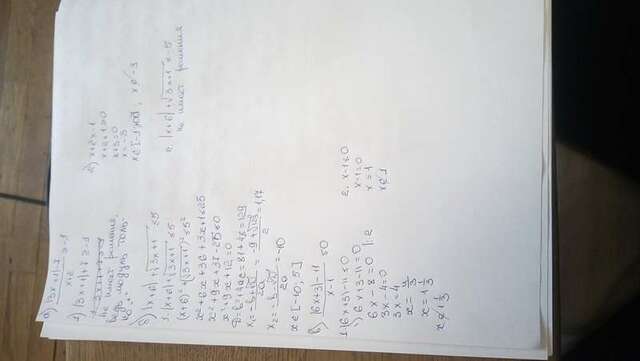 а) |3x+1|-7 / x+2 ≥ -1
1) |3x+1|-7 ≥ -1
не имеет решения,
ведь модуль толь-
ко "+"
2) x+2 ≥ -1
x+2+1 ≥ 0
x+3=0
x=-3
б) |x+6| + √3x+1 ≤ 5
1. |x+6| + √3x+1 ≤ 5
(x+6)² + (√3x+1)² ≤ 5²
x²+6x+36+3x+1 ≤ 25
x²+9x+37-25 ≤ 0
x²+9x+12=0
x₁ = -b+√D / 2a = -9+√129 / 2 = 1,17
x₂ = -b-√D / 2a = -10
x∈[-10; 5]
2. |x+6| + √3x+1 ≤ -5
не имеет решения
в) |6x+3|-11 / x-1 ≤ 0
1. |6x+3|-11 ≤ 0
1) 6x+3-11=0
6x-8=0 |:2
3x-4=0
3x=4
x= 4/3
x=1 1/3
2. x-1 ≤ 0
x-1=0
x=1